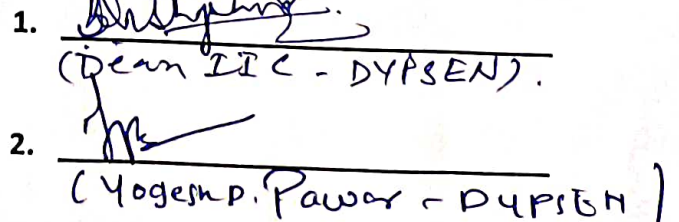 1.
(Dean IIC - DYPSEN).
2.
(Yogesh D. Pawar - DYPSEN)